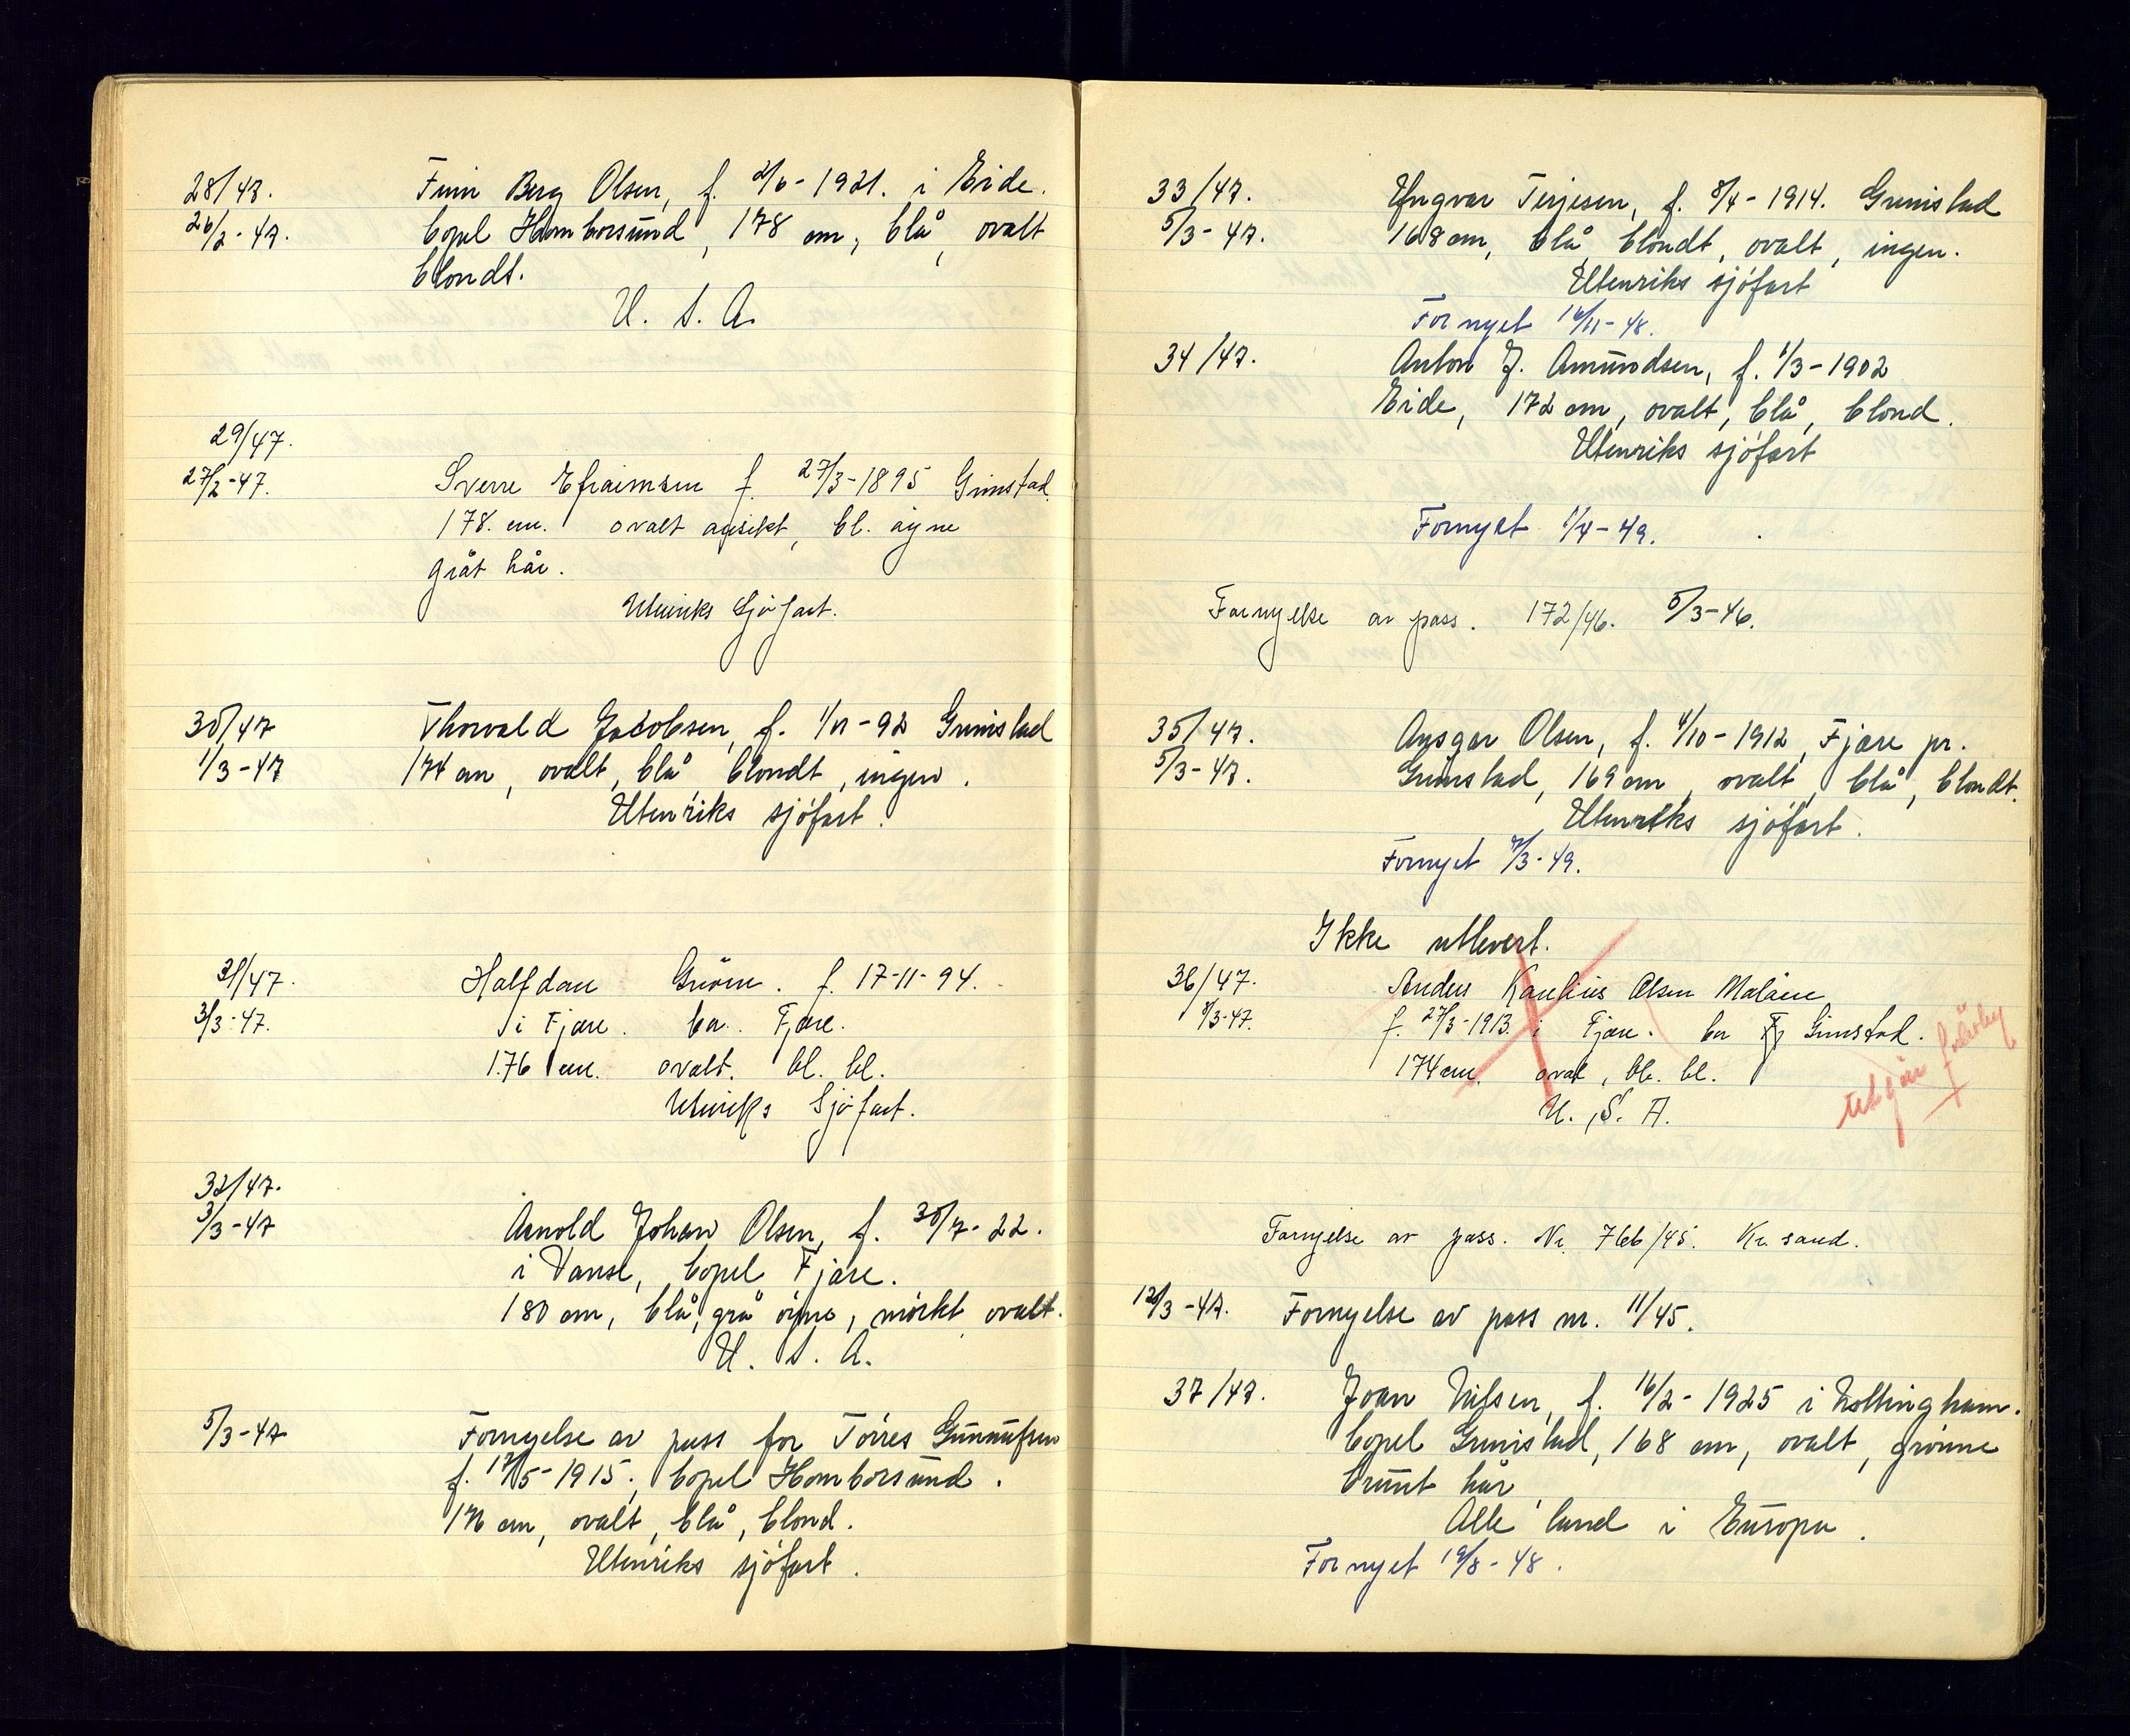 28/47.
Finn Berg Olsen, f. 2/6-1921. i Eide.
26/2-47.
bopel Homborsund, 178 cm, blå, ovalt
blondt.
U. S. A.
29/47.
27/2-47.
Sverre Efraimsen f. 27/3-1895 Grimstad.
178. cm. ovalt ansikt, bl. øyne
gråt hår.
Utenriks Sjøfart.
30/47
Thorvald Jacobsen, f. 1/11-92 Grimstad
1/3-47
174 cm, ovalt, blå blondt, ingen.
Utenriks sjöfart.
31/47.
Halfdan f. 17-11-94.
3/3-47.
i Fjære. bor. Fjære.
176 cm. ovalt. bl. bl.
Utenriks Sjøfart.
32/47.
3/3-47
Arnold Johan Olsen, f. 30/7-22.
i Vanse, bopel Fjære.
180 cm, blå, grå öine, mörkt ovalt.
U. S. A.
5/3-47
Fornyelse av pass for Törres Gunnufsen
f. 17/5-1915, bopel Homborsund.
176 cm, ovalt, blå, blond.
Utenriks sjöfart.
33/47.
Yngvar Terjesen, f. 8/4-1914. Grimstad
5/3-47.
168 cm, blå, blondt, ovalt, ingen.
Utenriks sjöfart
Fornyet 16/11-48.
34/47.
Anton J. Amundsen, f. 1/3-1902
Eide, 172 cm, ovalt, blå, blond.
Utenriks sjöfart
Fornyet 1/4-49.
Fornyelse av pass. 172/46. 5/3-46.
35/47.
Ansgar Olsen, f. 4/10-1912, Fjære pr.
5/3-47.
Grimstad, 169 cm, ovalt, blå, blondt.
Utenriks sjöfart.
Fornyet 7/3-49.
Ikke utlevert.
36/47.
Anders Olsen
8/3-47.
f. 27/3-1913 i Fjære. bor Grimstad.
174 cm. oval, bl. bl.
utgår
U. S. A.
Fornyelse av pass. Nr. 766/45. Kr.sand.
12/3-47.
Fornyelse av pass nr. 11/45.
37/47.
Joan Nilsen, f. 16/2-1925 i Nottingham.
bopel Grimstad, 168 cm, ovalt, grönne
brunt hår,
Alle land i Europa.
Fornyet 19/8-48.